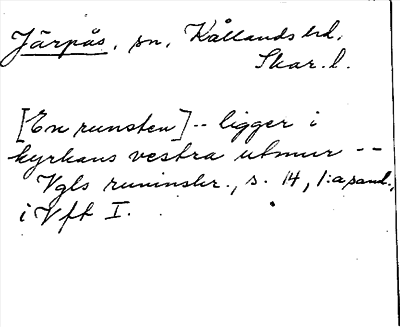 Järpås, sn, Kållands hd,
Skar. l.
[En runsten] -- ligger i
kyrkans vestra utmur --
Vgls runinskr., s. 14, 1:a saml.,
i Vft I.